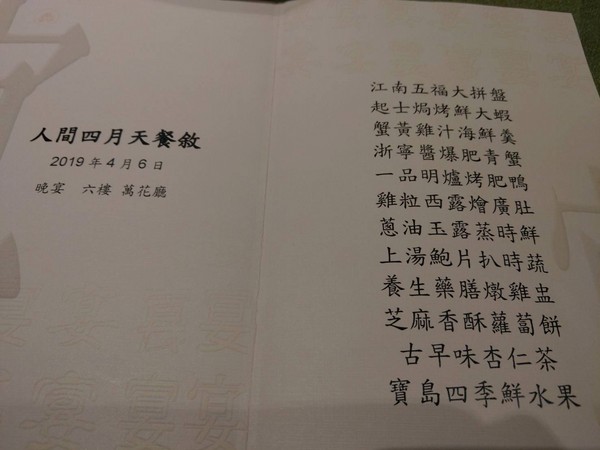 人間四月天餐敘
2019年4月6日
晚宴 六樓 萬花廳
江南五福大拼盤
起士焗烤鮮大蝦
蟹黃雞汁海鮮羹
浙寧醬爆肥青蟹
一品明爐烤肥鴨
雞粒西露燴廣肚
蔥油玉露蒸時鮮
上湯鮑片扒時蔬
養生藥膳燉雞盅
芝麻香酥蘿蔔餅
古早味杏仁茶
寶島四季鮮水果